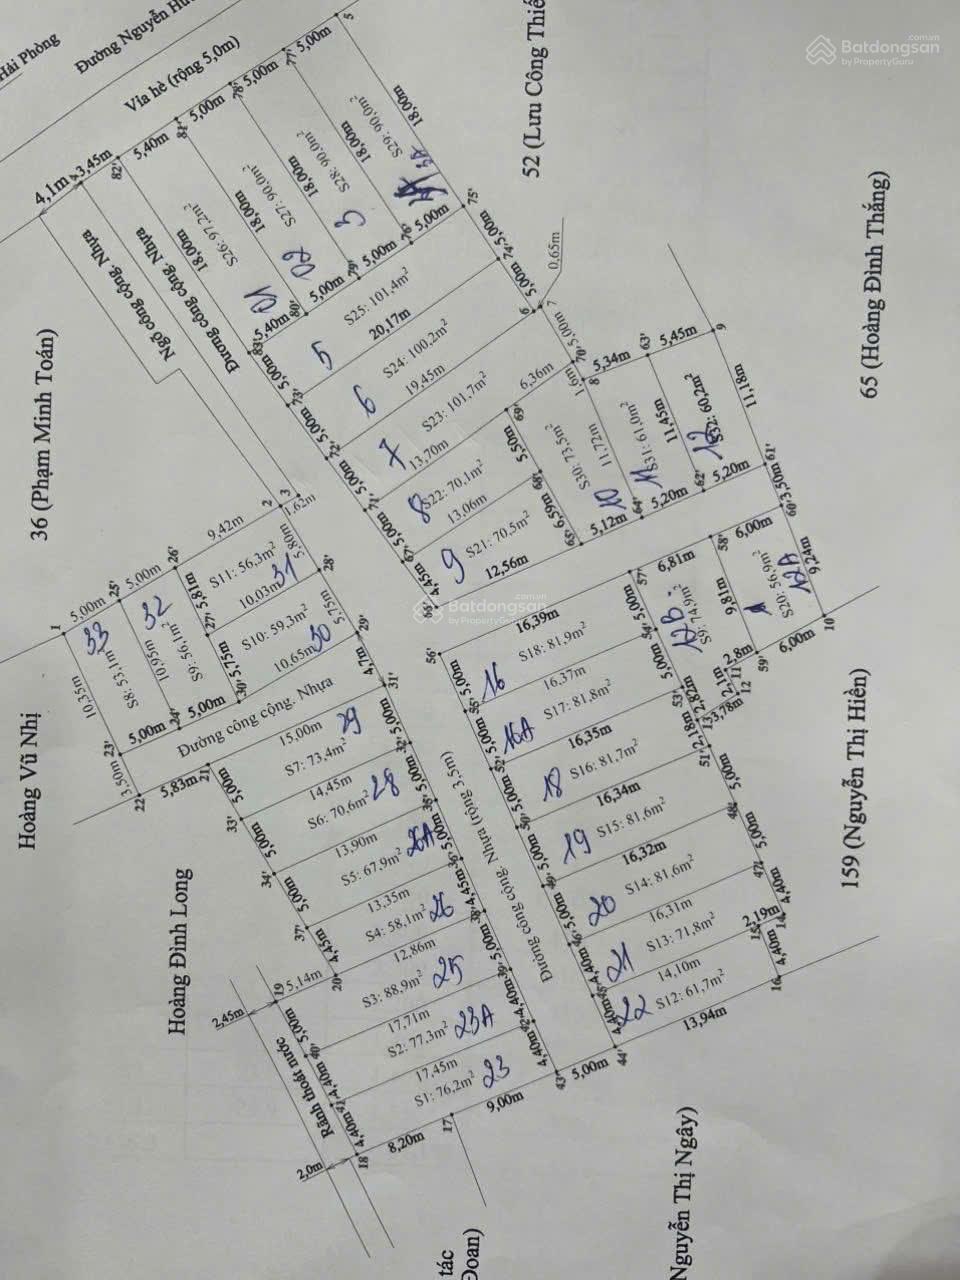 Batdongsan
.com.vn
by PropertyGuru
Hải Phòng
Đường Nguyễn
Vỉa hè (rộng 5,0m)
52 (Lưu Công Thiế
65 (Hoàng Đình Thắng)
36 (Phạm Minh Toán)
Hoàng Vũ Nhị
Hoàng Đình Long
159 (Nguyễn Thị Hiền)
Nguyễn Thị Ngây)
tác
Đoan)
Ngõ công cộng. Nhựa
Đường công cộng. Nhựa
Đường công cộng. Nhựa
Đường công cộng. Nhựa (rộng 3,5m)
Rãnh thoát nước
4,1m
3,45m
5,40m
5,00m
5,00m
5,00m
82'
81'
78'
77'
5
S26: 97,2m²
18,00m
01
S27: 90,0m²
18,00m
02
S28: 90,0m²
18,00m
3
S29: 90,0m²
18,00m
3A
18,00m
83'
5,40m
80'
5,00m
79'
5,00m
76'
5,00m
75'
5,00m
74'
5,00m
6
7
0,65m
S25: 101,4m²
20,17m
5
S24: 100,2m²
19,45m
6
S23: 101,7m²
13,70m
6,36m
7
S22: 70,1m²
13,06m
8
S21: 70,5m²
12,56m
9
5,00m
73'
5,00m
72'
5,00m
71'
5,00m
67'
4,45m
66'
69'
5,50m
68'
6,59m
65'
S30: 73,5m²
11,72m
10
5,12m
64'
S31: 61,0m²
11,45m
11
5,20m
62'
S32: 60,2m²
11,18m
12
5,20m
61'
5,00m
70'
1,6m
8
5,34m
63'
5,45m
9
3,50m
60'
9,24m
10
6,00m
59'
S20: 56,9m²
12A
9,81m
6,00m
58'
6,81m
57'
74,9m²
12B
2,8m
11
2,1m
12
3,78m
13
2,82m
53'
5,00m
54'
5,00m
2,18m
51'
56'
16,39m
S18: 81,9m²
16
16,37m
S17: 81,8m²
16A
16,35m
S16: 81,7m²
18
16,34m
S15: 81,6m²
19
16,32m
S14: 81,6m²
20
16,31m
S13: 71,8m²
21
14,10m
S12: 61,7m²
22
13,94m
5,00m
55'
5,00m
52'
5,00m
50'
5,00m
49'
5,00m
46'
4,40m
45'
4,40m
44'
5,00m
48'
5,00m
47'
4,40m
14
2,19m
15
4,40m
16
1
5,00m
25'
5,00m
26'
9,42m
2
3
1,62m
10,35m
S8: 53,1m²
33
10,95m
S9: 56,1m²
32
5,81m
27'
S11: 56,3m²
31
10,03m
5,80m
28'
S10: 59,3m²
30
10,65m
5,75m
30'
5,75m
29'
4,7m
31'
23'
5,00m
24'
5,00m
3,50m
22
5,83m
21
15,00m
S7: 73,4m²
29
14,45m
S6: 70,6m²
28
13,90m
S5: 67,9m²
26A
13,35m
S4: 58,1m²
26
12,86m
S3: 88,9m²
25
17,71m
S2: 77,3m²
23A
17,45m
S1: 76,2m²
23
5,00m
33'
5,00m
34'
5,00m
37'
4,45m
20
5,14m
19
2,45m
5,00m
40'
4,40m
41'
4,40m
18
2,0m
8,20m
17
9,00m
43'
5,00m
5,00m
32'
5,00m
35'
5,00m
36'
4,45m
38'
5,00m
39'
4,40m
42'
4,40m
Batdongsan
.com.vn
by PropertyGuru